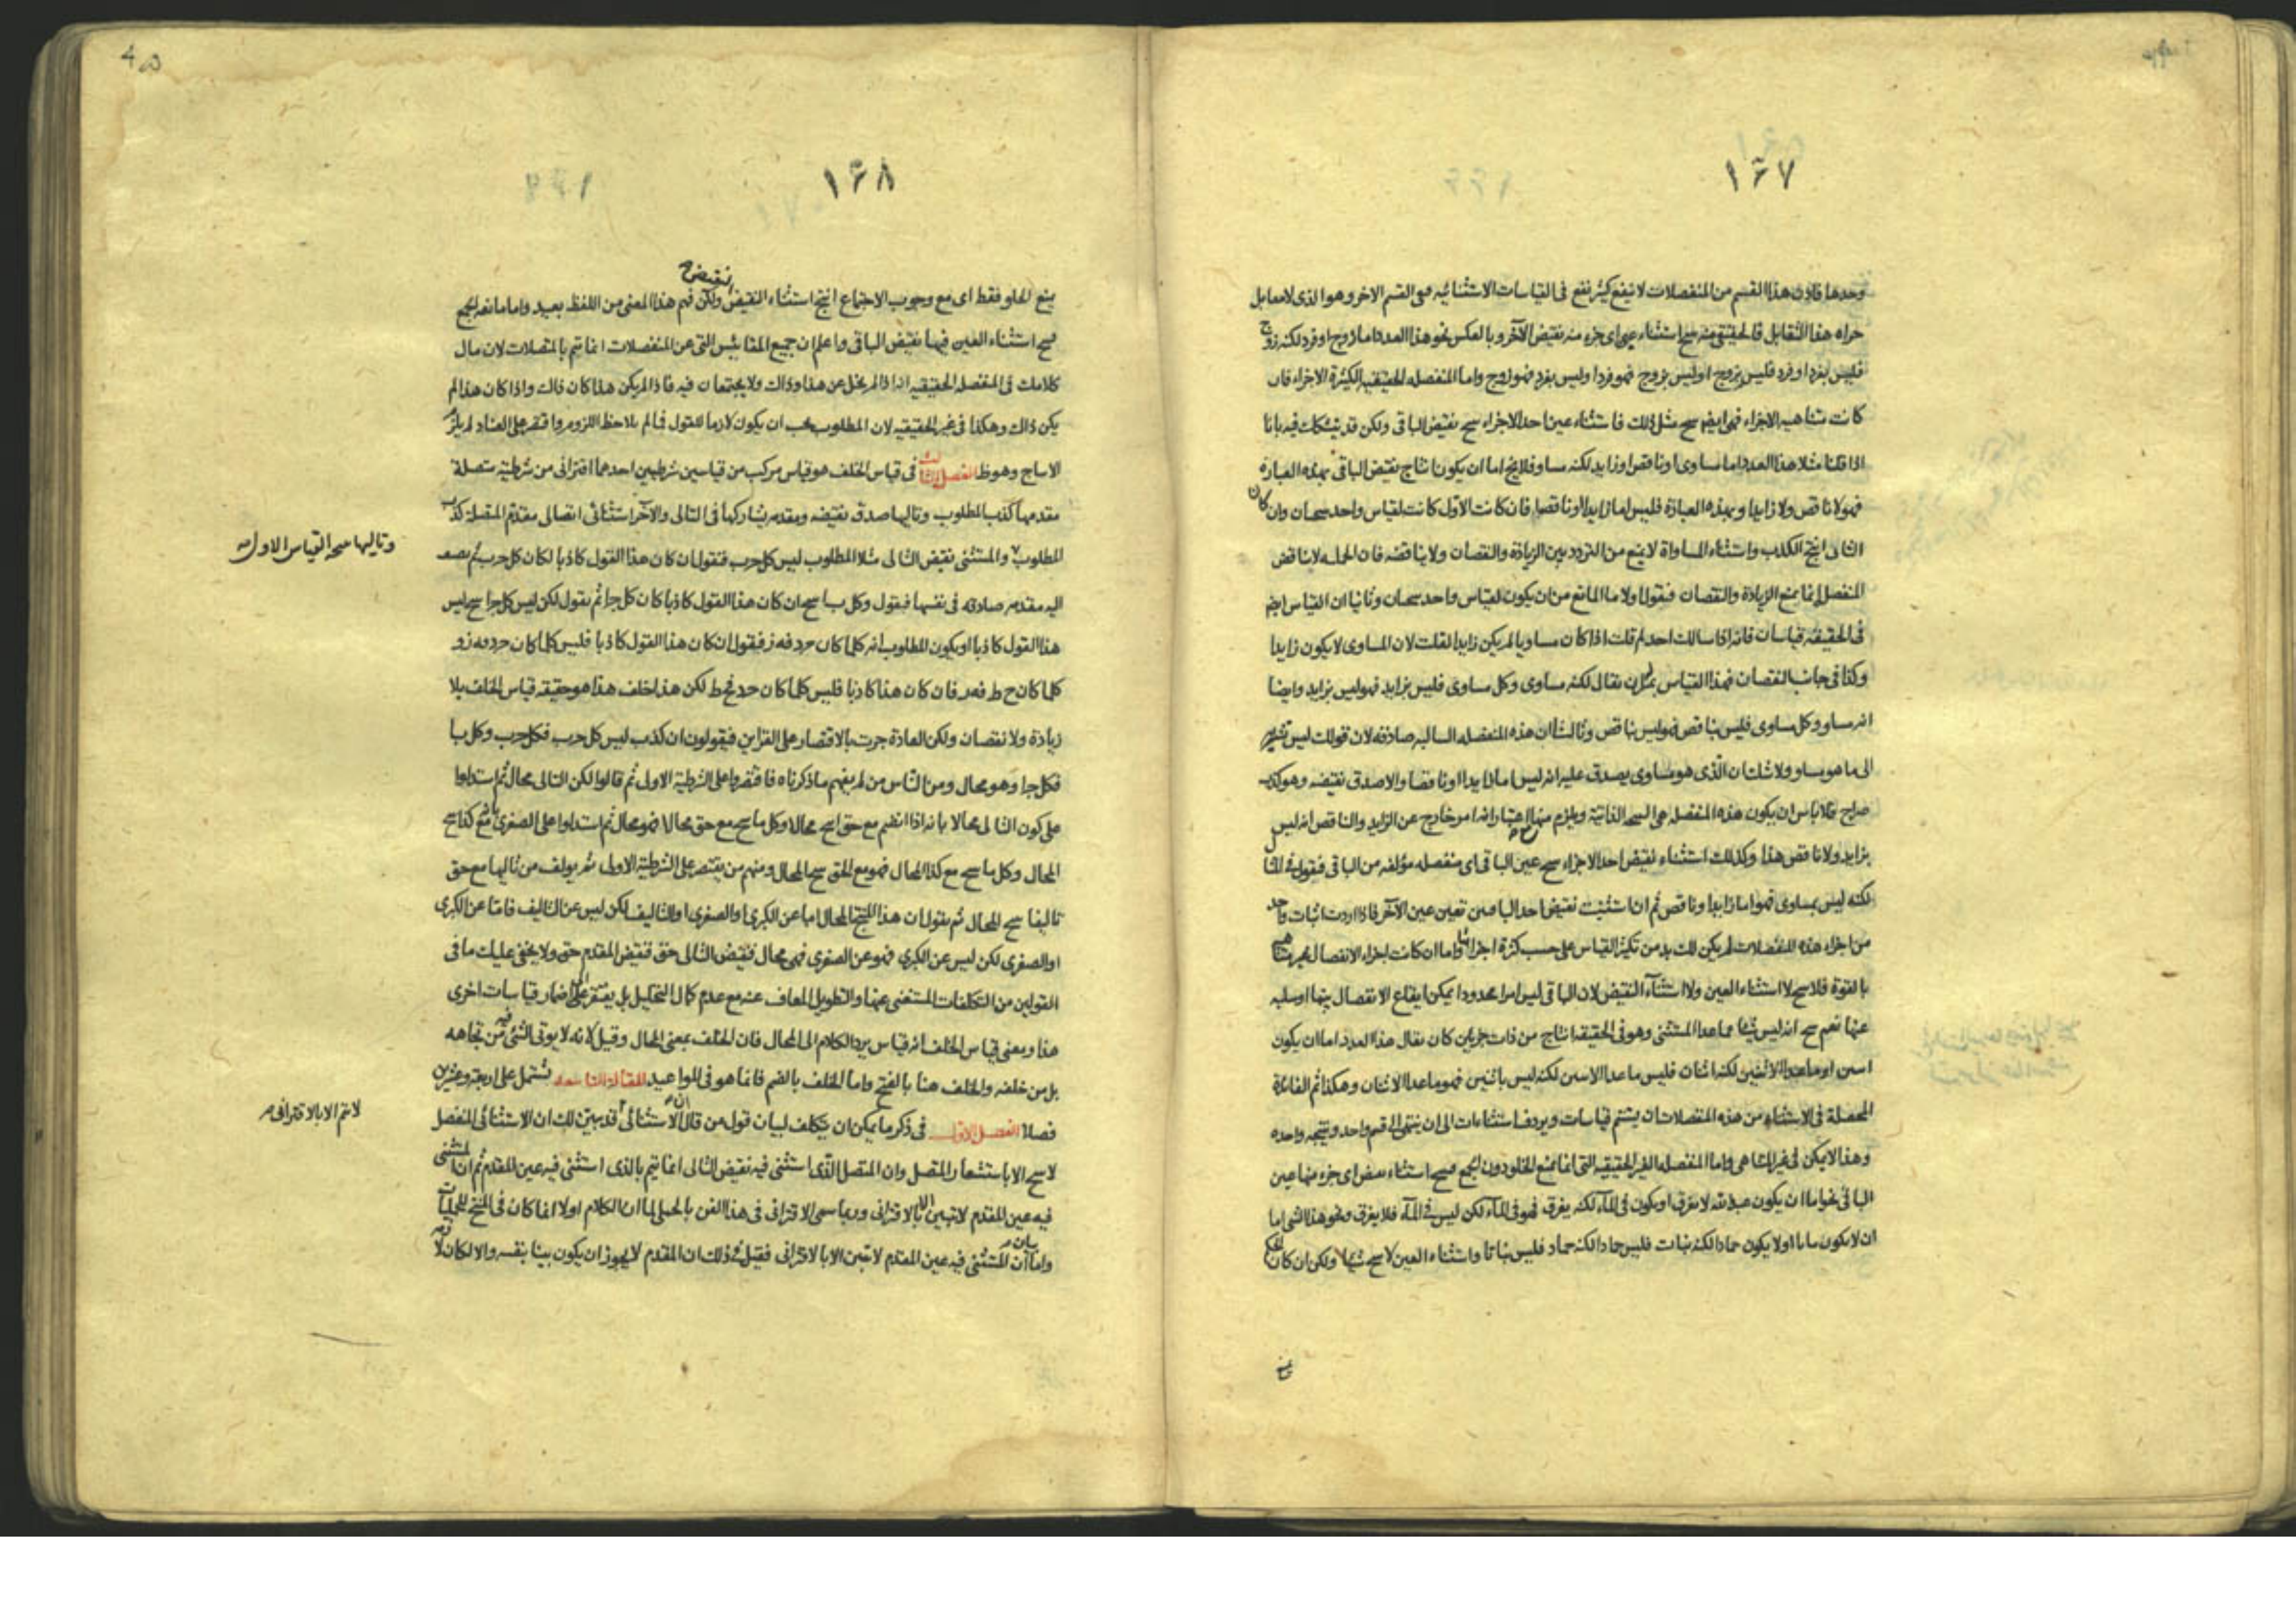 ١٦٧
وحدها فاذن هذا القسم من المنفصلات لا ينفع كثير نفع في القياسات الاستثنائيه فهي القسم الاخر وهو الذى لامعابل
هذا التقابل فالحقيقى منه سح استثناء عين اى جزء منه نقيض الآخر وبالعكس نحو هذا العدد اما زوج او فرد لكنه زوج
فليس بفرد او فرد فليس بزوج او ليس بزوج فهو فرد او ليس بفرد فهو زوج واما المنفصله الحقيقيه الكثيرة الاجزاء فان
كانت متناهيه الاجزاء فهى ايضا سح مثل ذلك فاستثناء عين احد الاجزاء سح نقيض الباقى ولكن قد يتشكك فيه بانا
اذا قلنا مثلا هذا العدد اما مساوى او ناقص او زايد لكنه مساو فلا يخ اما ان يكون انتاج نقيض الباقى بهذه العبارة
فهو لا ناقص ولا زايد او بهذه العبارة فليس اما زايدا او ناقصا فان كانت الاول كانت لقياس واحد سحان وان كان
الثانى انتج الكذب واستثناء المساواة لا يمنع من التردد بين الزيادة والنقصان ولا يناقضه فان الحمليه لا يناقض
المنفصل انما يمنع الزيادة والنقصان فنقول اولا ما المانع من ان يكون لقياس واحد سحان وثانيا ان القياس ايضا
فى الحقيقه قياسان فانه اذا سالك احد لم قلت اذا كان مساويا لم يكن زايدا لقلت لان المساوى لا يكون زايدا
وكذا فى جانب النقصان فهذا القياس بمثل ان يقال لكنه مساوى وكل مساوى فليس بزايد فهو ليس بزايد وايضا
انه مساو وكل مساوى فليس بناقص فهو ليس بناقص وثالثا ان هذه المنفصله السالبه صادقه لان قولك ليس
الى ما هو مساو ولا شك ان الذى هو مساوى يصدق عليه انه ليس اما زايدا او ناقصا والا صدق نقيضه وهو كذب
صراح فلا باس ان يكون هذه المنفصله هى النتيجه الذاتية ويلزم منها اعتبار انه امر خارج عن الزايد والناقص انه ليس
بزايد ولا ناقص هذا وكذلك استثناء نقيض احد الاجزاء سح عين الباقى اى منفصله مؤلفه من الباقى فيقول فى المثال
لكنه ليس بمساوى فهو اما زايد او ناقص ثم ان استثنيت نقيض احد الباقيين تعين عين الآخر فاذا اردت اثبات واحد
من اجزاء هذه المنفصلات لم يكن لك بد من تكثير القياس على حسب كثرة اجزائها واما ان كانت اجزاء الانفصال غير متناهيه
بالقوة فلا سح لا استثناء العين ولا استثناء النقيض لان الباقى ليس امرا محدودا يمكن ايقاع الانفصال بينها او سلبه
عنها نعم سح انه ليس شيئا مما عدا المستثنى وهو فى الحقيقه انتاج من ذات جزءين كان يقال هذا العدد اما ان يكون
اسن او ما عدا الاثنين لكنه اثنان فليس ما عدا الاسن لكنه ليس باثنين فهو ما عدا الاثنان وهكذا ثم الفائدة
المحصلة فى الاستثناء من هذه المنفصلات ان يستتم قياسات ويردف استثناءات الى ان ينتهى الى قسم واحد ونتيجه واحده
وهذا لا يمكن فى غير المتناهى واما المنفصله الغير الحقيقيه التى انما تمنع الخلو دون الجمع فسح استثناء نقيض اى جزء منها عين
الباقى نحو اما ان يكون عبد الله لا يغرق او يكون فى الماء لكنه يغرق فهو فى الماء لكن ليس فى الماء فلا يغرق ونحو هذا الشى اما
ان لا يكون نباتا او لا يكون جمادا لكنه نبات فليس جمادا لكنه جماد فليس نباتا واستثناء العين لا سح شيئا ولكن ان كان
١٦٨
يمنع الخلو فقط اى مع وجوب الاجتماع انتج استثناء النقيض ولكن فهم هذا المعنى من اللفظ بعيد واما مانعه الجمع
نقيض
سح استثناء العين فيها نقيض الباقى واعلم ان جميع المقائيس التى عن المنفصلات انما تتم بالمتصلات لان مال
كلامك فى المنفصله الحقيقيه انه اذا لم يخل عن هذا وذاك ولا يجتمعان فيه فاذا لم يكن هذا كان ذاك واذا كان هذا لم
يكن ذاك وهكذا فى غير الحقيقيه لان المطلوب يجب ان يكون لازما للقول فما لم يلاحظ اللزوم واقتصر على العناد لم يلزم
الانتاج وهو ظ الفصل الثالث فى قياس الخلف هو قياس مركب من قياسين شرطيين احدهما اقترانى من شرطية متصلة
مقدمها كذب المطلوب وتاليها صدق نقيضه ومقدمه يشاركها فى التالى والآخر استثنائى اتصالى مقدم المتصله كذب
المطلوب والمستثنى نقيض التالى مثلا المطلوب ليس كل ج ب فنقول ان كان هذا القول كاذبا لكان كل ج ب ثم نضف
وتاليها سحه القياس الاول
اليه مقدمه صادقه فى نفسها فيقول وكل ب ا سح ان كان هذا القول كاذبا كان كل ج ا ثم نقول لكن ليس كل ج ا سح ليس
هذا القول كاذبا او يكون المطلوب انه كلما كان ج د فه ز فيقول ان كان هذا القول كاذبا فليس كلما كان ج د فه ز و
كلما كان ح ط فه ز فان كان هذا كاذبا فليس كلما كان ج د فح ط لكن هذا خلف هذا هو حقيقه قياس الخلف بلا
زيادة ولا نقصان ولكن العادة جرت بالاقتصار على القراين فيقولون ان كذب ليس كل ج ب فكل ج ب وكل ب ا
فكل ج ا وهو محال ومن الناس من لم يفهم ما ذكرناه فاقتصروا على الشرطية الاولى ثم قالوا لكن التالى محال ثم استدلوا
على كون التالى محالا بانه اذا انضم مع حق انتج محالا وكل ما سح مع حق محالا فهو محال ثم استدلوا على الصغرى بانه مع كذا سح
المحال وكل ما سح مع كذا المحال فهو مع الحق سح المحال ومنهم من يقتصر على الشرطية الاولى ثم يولف من تاليها مع حق
تاليفا سح المحال ثم يقول ان هذا المنتج المحال اما عن الكبرى او الصغرى او التاليف لكن ليس عن التاليف فاما عن الكبرى
او الصغرى لكن ليس عن الكبرى فهو عن الصغرى فهى محال فنقيض التالى حق فنقيض المقدم حق ولا يخفى عليك ما فى
القولين من التكلفات المستغنى عنها والتطويل المعاف عنه مع عدم كمال التحليل بل يفتقر الى اضمار قياسات اخرى
هذا ومعنى قياس الخلف انه قياس يرد الكلام الى المحال فان الخلف بمعنى المحال وقيل لانه لا يوتى الشئ فيه من تجاهه
بل من خلفه والخلف هنا بالفتح واما الخلف بالضم فانما هو فى المواعيد المقالة التاسعه تشتمل على اربعة وعشرين
فصلا الفصل الاول فى ذكر ما يمكن ان يتكلف لبيان قول من قال ان الاستثنائى قد بين لك ان الاستثنائى المنفصل
لا يتم الا بالاقترانى
لا سح الا باستشعار المتصل وان المتصل الذى استثنى فيه نقيض التالى انما يتم بالذى استثنى فيه عين المقدم ثم ان المستثنى
فيه عين المقدم لا تبين الا بالاقترانى وربما سمى الاقترانى فى هذا الفن بالحملى لما ان الكلام اولا انما كان فى المنتج للحمليات
واما بيان ان المستثنى فيه عين المقدم لا تبين الا بالاقترانى فقيل فى ذلك ان المقدم لا يجوز ان يكون بينا بنفسه والا لكان